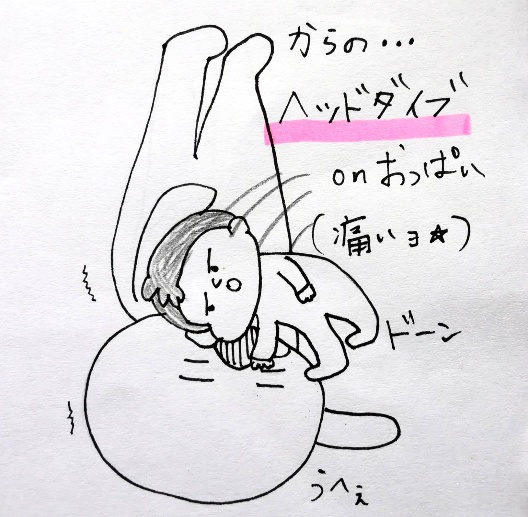 からの...
ヘッドダイブ
onおっぱい
(痛いョ★)
ドーン
うへぇ